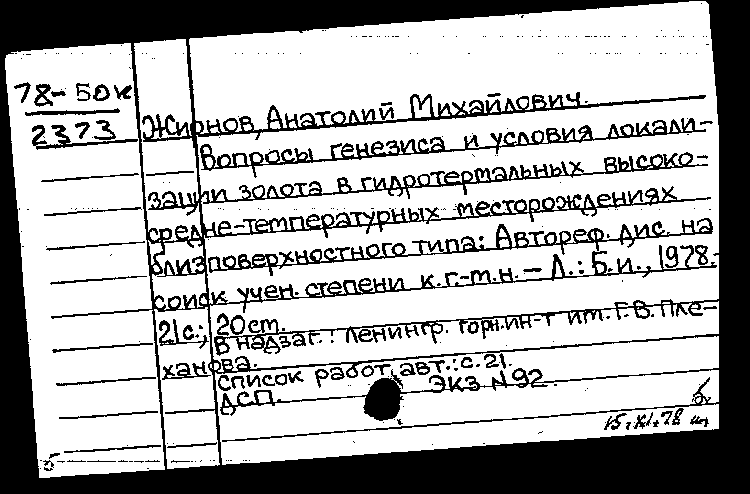 78-50к
2373
Жирнов, Анатолий Михайлович.
Вопросы генезиса и условия локали-
зации золота в гидротермальных высоко-
средне-температурных месторождениях
близповерхностного типа: Автореф. дис. на
соиск учен. степени к.г.-м.н. – Л.: Б.и., 1978.-
21с.; 20см.
В надзаг.: Ленингр. горн.ин-т им. Г.В. Пле-
ханова.
Список работ авт.: с. 21.
ДСП. Экз N 92.
15.XI.78